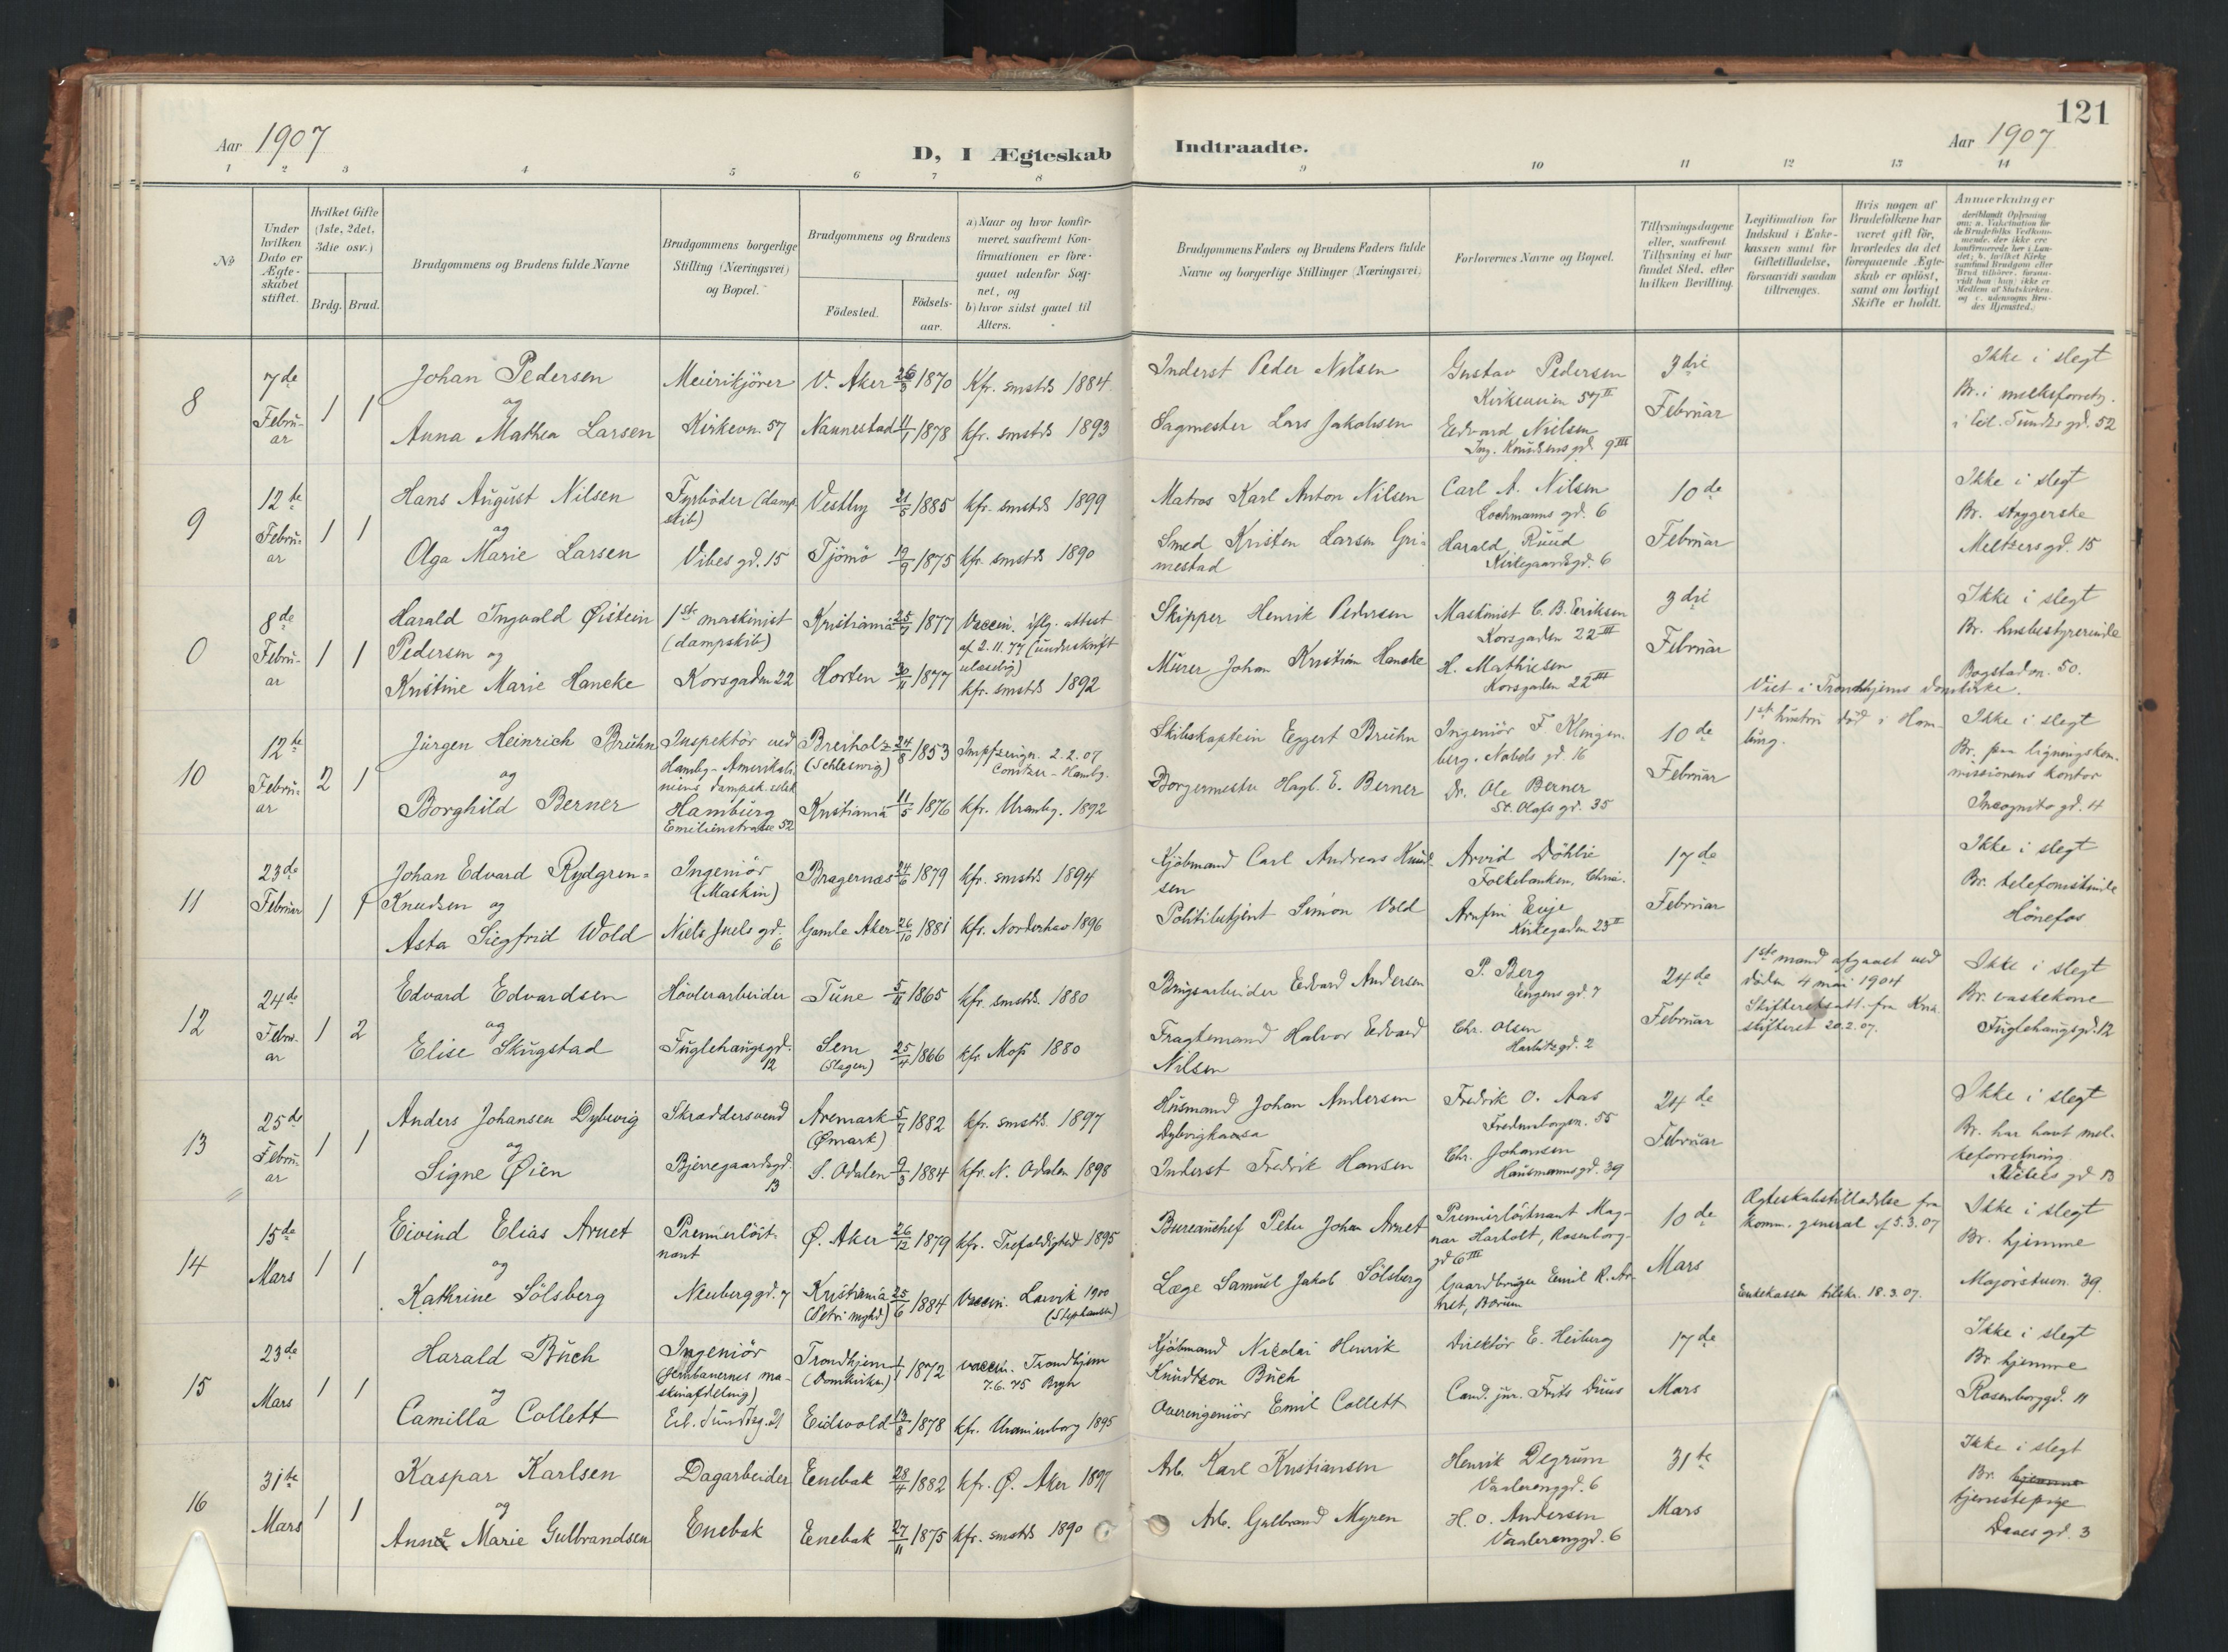 121
Aar 1907
D, I Ægteskab Indtraadte.
Aar 1907
1 2 3 4 5 6 7 8 9 10 11 12 13 14
No
Under hvilken Dato er Ægteskabet stiftet.
Hvilket Gifte (1ste, 2det, 3die osv.)
Brdg. Brud.
Brudgommens og Brudens fulde Navne
Brudgommens borgerlige Stilling (Næringsvei) og Bopæl.
Brudgommens og Brudens
Födested.
Födselsaar.
a) Naar og hvor konfirmeret, saafremt Konfirmationen er foregaaet udenfor Sognet, og
b) hvor sidst gaaet til Alters.
Brudgommens Faders og Brudens Faders fulde Navne og borgerlige Stillinger (Næringsvei)
Forlovernes Navne og Bopæl.
Tillysningsdagene eller, saafremt Tillysning ei har fundet Sted, efter hvilken Bevilling.
Legitimation for Indskud i Enkekassen samt for Giftetilladelse, forsaavidt saadan tiltrænges.
Hvis nogen af Brudefolkene har været gift för, hvorledes da det foregaaende Ægteskab er oplöst, samt om lovligt Skifte er holdt.
Anmærkninger
8
7de Februar
1 1
Johan Pedersen
og
Anna Mathea Larsen
Meierikjörer
Kirkevn. 57
V. Aker 26/3 1870
Kfr. smstds 1884
Nannestad 11/1 1878
kfr. smstds 1893
Inderst Peder Nilsen
Sagmester Lars Jakobsen
Gustav Pedersen
Kirkeveien 57 II
Edvard Nielsen
Ing. Knudsens gd. 9 III
3die
Februar
Ikke i slegt
Br. i melkeforretn.
i Eil. Sundts gd. 52
9
12te Februar
1 1
Hans August Nilsen
og
Olga Marie Larsen
Fyrböder (dampskib)
Vibes gd. 15
Vestby 21/5 1885
kfr. smstds 1899
Tjömö 19/9 1875
kfr. smstds 1890
Matros Karl Anton Nilsen
Smed Kristen Larsen Grimestad
Carl A. Nilsen
Lochmanns gd. 6
Harald Ruud
Kirkegaardsgd. 6
10de
Februar
Ikke i slegt
Br. strygerske
Meltzersgd. 15
0
8de Februar
1 1
Harald Ingvald Øistein
Pedersen og
Kristine Marie Hancke
1ste maskinist
(dampskib)
Korsgaden 22
Kristiania 25/7 1877
Vaccin. iflg. attest
af 2.11.77 (underskrift
ulæselig)
Horten 30/11 1877
kfr. smstds 1892
Skipper Henrik Pedersen
Murer Johan Kristian Hancke
Maskinist C. B. Eriksen
Korsgaden 22 III
H. Mathiesen
Korsgaden 22 III
3die
Februar
Ikke i slegt
Br. husbestyrerinde
Bogstadvn. 50.
Viet i Trondhjems domkirke.
10
12te Februar
2 1
Jürgen Heinrich Bruhn
og
Borghild Berner
Inspektör ved
Hambg-Amerikaliniens dampsk. selsk.
Hamburg
Emilienstrasse 52
Breiholz (Schleswig) 24/8 1853
Impfzeugn. 2.2.07
Kristiania 11/5 1876
kfr. Uranbg. 1892
Skibskaptein Eggert Bruhn
Borgermester Hagb. E. Berner
Ingeniör F. Klingenberg. Nobels gd. 16
Dr. Ole Berner
St. Olafs gd. 35
10de
Februar
1ste hustru död i Hamburg.
Ikke i slegt
Br. paa ligningskommissionens kontor
Incognito gd. 4
11
23de Februar
1 1
Johan Edvard Rydgren-
Knudsen og
Asta Siegfrid Wold
Ingeniör
(Maskin)
Niels Juels gd. 6
Bragernæs 24/6 1879
kfr. smstds 1894
Gamle Aker 26/10 1881
kfr. Norderhov 1896
Kjöbmand Carl Andreas Knudsen
Politibetjent Simon Vold
Arvid Döhlie
Folkebanken, Chria.
Arnfin Evje
Kirkegaden 23 II
17de
Februar
Ikke i slegt
Br. telefonistinde
Hönefos
12
24de Februar
1 2
Edvard Edvardsen
og
Elise Skugstad
Hövleriarbeider
Fuglehaugsgd. 12
Tune 5/11 1865
kfr. smstds. 1880
Sem (Slagen) 25/4 1866
kfr. Moss 1880
Brugsarbeider Edvard Andersen
Fragtemand Halvor Edvard
Nilsen
P. Berg
Engens gd. 7
Chr. Olsen
Harbitz gd. 2
24de
Februar
1ste mand afgaaet ved
döden 4 mai 1904
Skifteretsatt. fra Kria.
skifteret 20.2.07.
Ikke i slegt
Br. vaskekone
Fuglehaugsgd. 12
13
25de Februar
1 1
Anders Johansen Dybevig
og
Signe Øien
Skræddersvend
Bjerregaardsgd. 13
Aremark (Ømark) 5/7 1882
kfr. smstds. 1897
S. Odalen 9/3 1884
kfr. N. Odalen 1898
Husmand Johan Andersen
Inderst Fredrik Hansen
Fredrik O. Aas
Fredensborgvn. 55
Chr. Johansen
Hausmannsgd. 39
24de
Februar
Ikke i slegt
Br. har havt melkeforretning
14
15de Mars
1 1
Eivind Elias Arnet
og
Kathrine Sölsberg
Premierlöitnant
Neuberggd. 7
Ø. Aker 26/12 1879
kfr. Trefoldighed 1895
Kristiania (Petri mghd) 25/6 1884
Vaccin. Larvik 1900
(Stephansen)
Bureauchef Peter Johan Arnet
Læge Samuel Jakob Sölsberg
Premierlöitnant Magnar Harholt, Rosenborggd 6 III
Gaardbruger Emil R. Arnet, Borum
10de
Mars
Ægteskabstilladelse fra
komm. general af 5.3.07
Enkekassen tilskr. 18.3.07.
Ikke i slegt
Br. hjemme
Majorstuvn. 39.
15
23de Mars
1 1
Harald Buch
og
Camilla Collett
Ingeniör
(Jernbanernes maskinafdeling)
Eil. Sundtsg. 21
Trondhjem (Domkirken) 1/1 1872
vaccin. Trondhjem
7.6.75 Bryn
Eidsvold 13/8 1878
kfr. Uranienborg 1895
Kjöbmand Nicolai Henrik
Knudtzon Buch
Overingeniör Emil Collett
Direktör E. Heiberg
Cand. jur. Frits Duus
17de
Mars
Ikke i slegt
Br. hjemme
Rosenborggd. 11
16
31te Mars
1 1
Kaspar Karlsen
og
Anne Marie Gulbrandsen
Dagarbeider
Enebak
Enebak 28/4 1882
kfr. Ø. Aker 1897
Enebak 27/11 1875
kfr. smstds 1890
Arb. Karl Kristiansen
Arb. Gulbrand Myren
Henrik Degrum
Vaalerenggd. 6
H. O. Andersen
Vaalerenggd. 6
31te
Mars
Ikke i slegt
Br. hjemme
tjenestepige
Daaes gd. 3